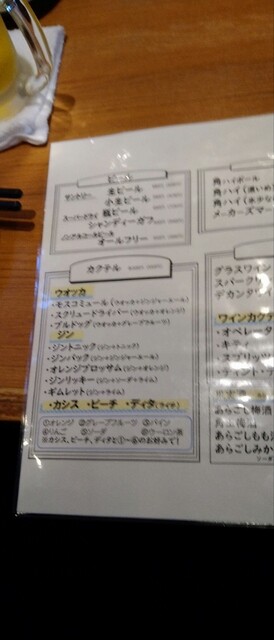 ビール
サントリー 生ビール
小生ビール
スーパードライ 瓶ビール
シャンディーガフ
ノンアルコールビール オールフリー
カクテル
ウオッカ
・モスコミュール(ウオッカ+ジンジャーエール)
・スクリュードライバー(ウオッカ+オレンジ)
・ブルドッグ(ウオッカ+グレープフルーツ)
ジン
・ジントニック(ジン+トニック)
・ジンバック(ジン+ジンジャーエール)
・オレンジブロッサム(ジン+オレンジ)
・ジンリッキー(ジン+ソーダ+ライム)
・ギムレット(ジン+ライム)
・カシス ・ピーチ ・ディタ(ライチ)
①オレンジ ②グレープフルーツ ③パイン
④りんご ⑤ソーダ ⑥ウーロン茶
※カシス、ピーチ、ディタは①~⑥のお好みで!
角ハイボール
角ハイ(濃いめ
角ハイ
メーカーズマー
グラスワイン
スパークリ
デカンタ
ワインカク
・オペレータ
・キティ
・スプリッツ
あらごし梅酒
あらごしもも
あらごしみか